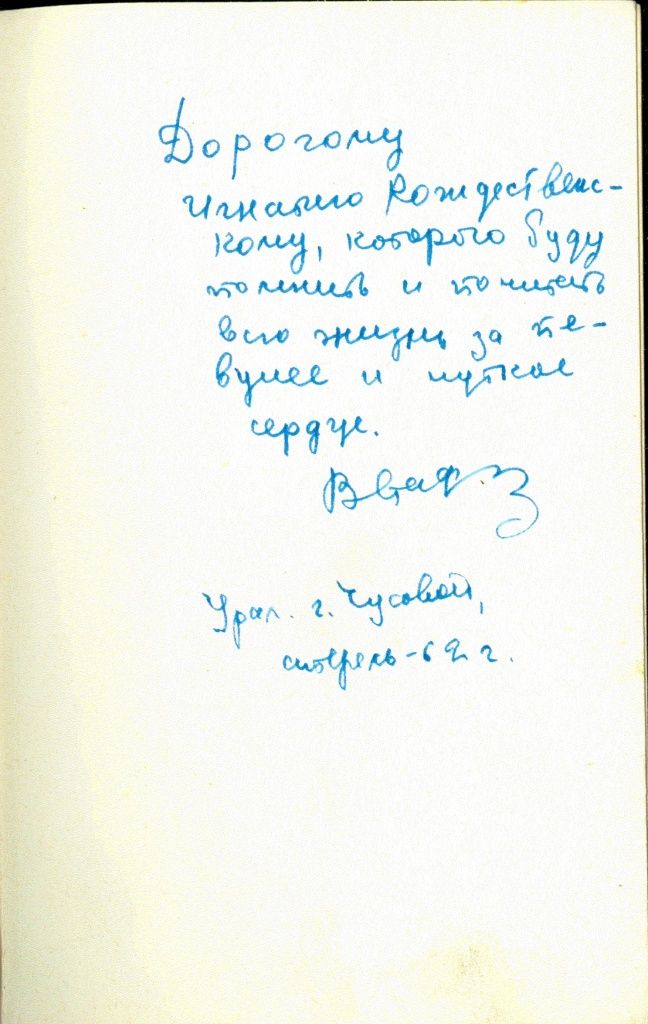 Дорогому
Игнатию Рождественс-
кому, которого буду
помнить и почитать
всю жизнь за пе-
вучее и чуткое
сердце.
В Астаф
Урал. г. Чусовой,
апрель-62 г.